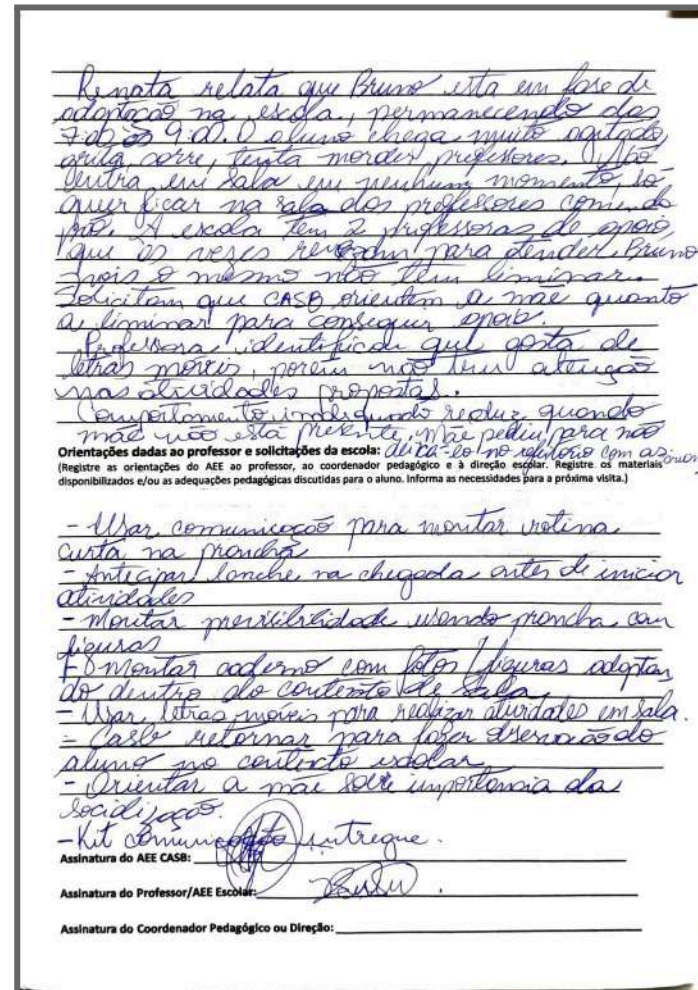 Renata relata que Bruno esta em fase de
adaptação na escola, permanecendo das
7:00 às 9:00. O aluno chega muito agitado,
grita, corre, tenta morder professores. Não
entra em sala em nenhum momento, só
quer ficar na sala dos professores comendo
pão. A escola tem 2 professoras de apoio
que às vezes revezam para atender Bruno
pois o mesmo não tem liminar.
Solicitam que CASB orientem a mãe quanto
a liminar para conseguir apoio.
Professora identificou que gosta de
letras móveis, porém não tem atenção
nas atividades propostas.
Comportamento inadequado reduz quando
mãe não está presente. Mãe pediu para não
Orientações dadas ao professor e solicitações da escola: deixá-lo no refeitório com as
(Registre as orientações do AEE ao professor, ao coordenador pedagógico e à direção escolar. Registre os materiais
disponibilizados e/ou as adequações pedagógicas discutidas para o aluno. Informa as necessidades para a próxima visita.)
- Usar comunicação para montar rotina
curta na prancha
- Antecipar lanche na chegada antes de iniciar
atividades
- Montar previsibilidade usando prancha com
figuras
- Montar caderno com fotos / figuras adaptan
do dentro do contexto de sala
- Usar letras móveis para realizar atividades em sala.
- Casb retornar para fazer observação do
aluno no contexto escolar
- Orientar a mãe sobre importancia da
socialização.
- Kit comunicação entregue.
Assinatura do AEE CASB:
Assinatura do Professor/AEE Escolar:
Assinatura do Coordenador Pedagógico ou Direção: